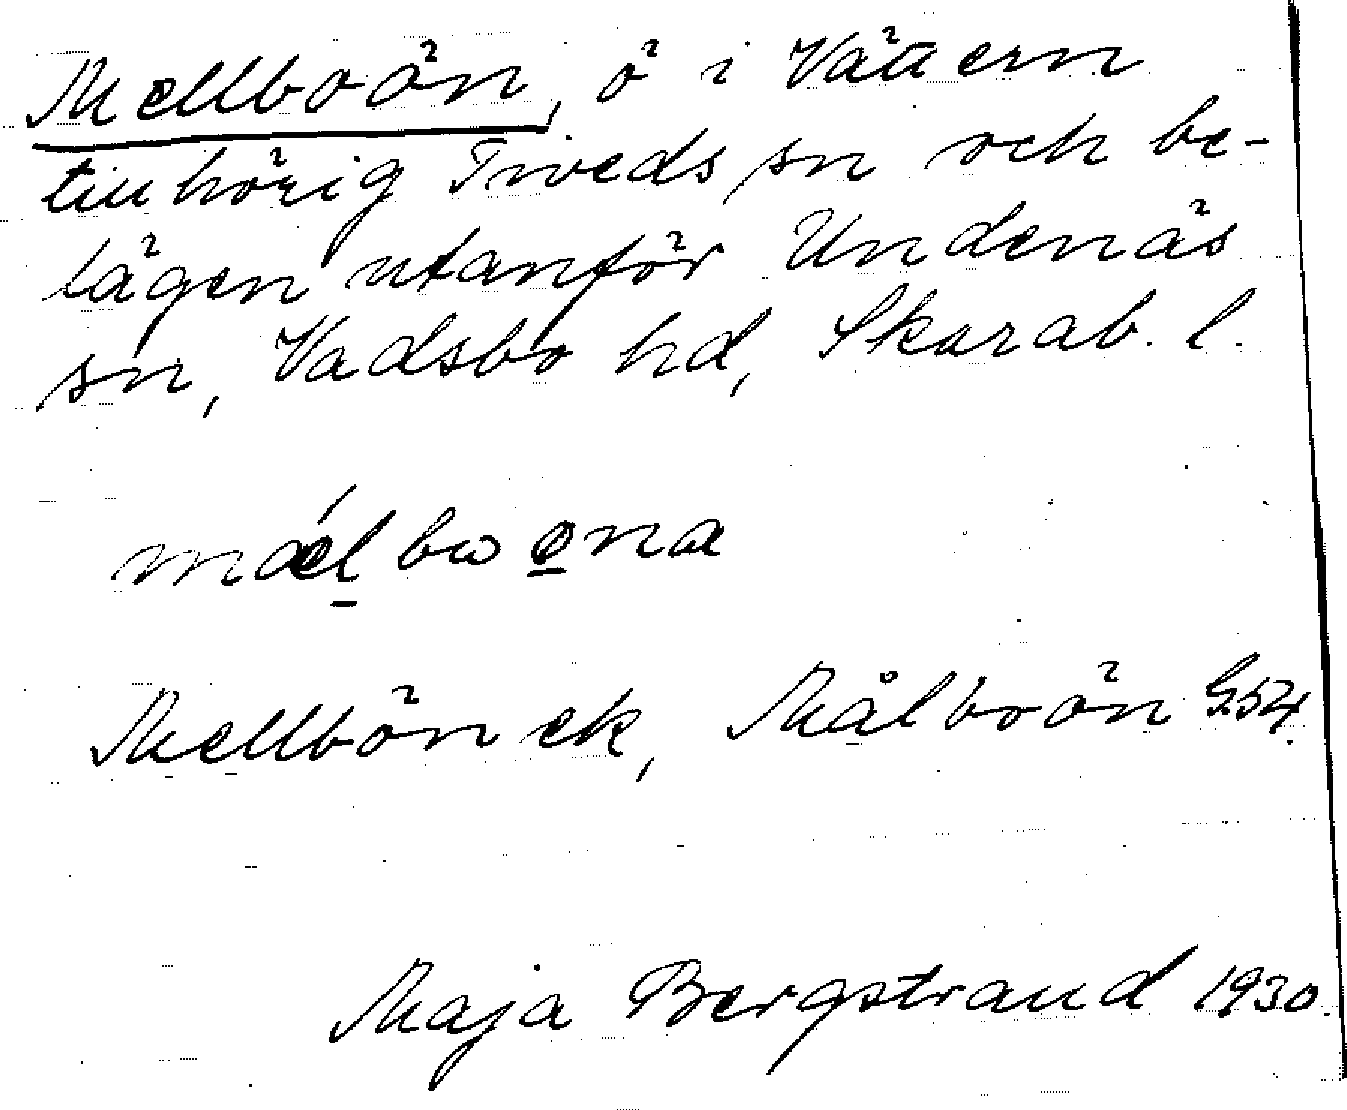 Mellboön, ö i Vättern
tillhörig Tiveds sn och be-
lägen utanför Undenäs
sn, Vadsbo hd, Skarab. l.
mǽlbwọna
Mellbön ek, Målboön G54.
Maja Bergstrand 1930